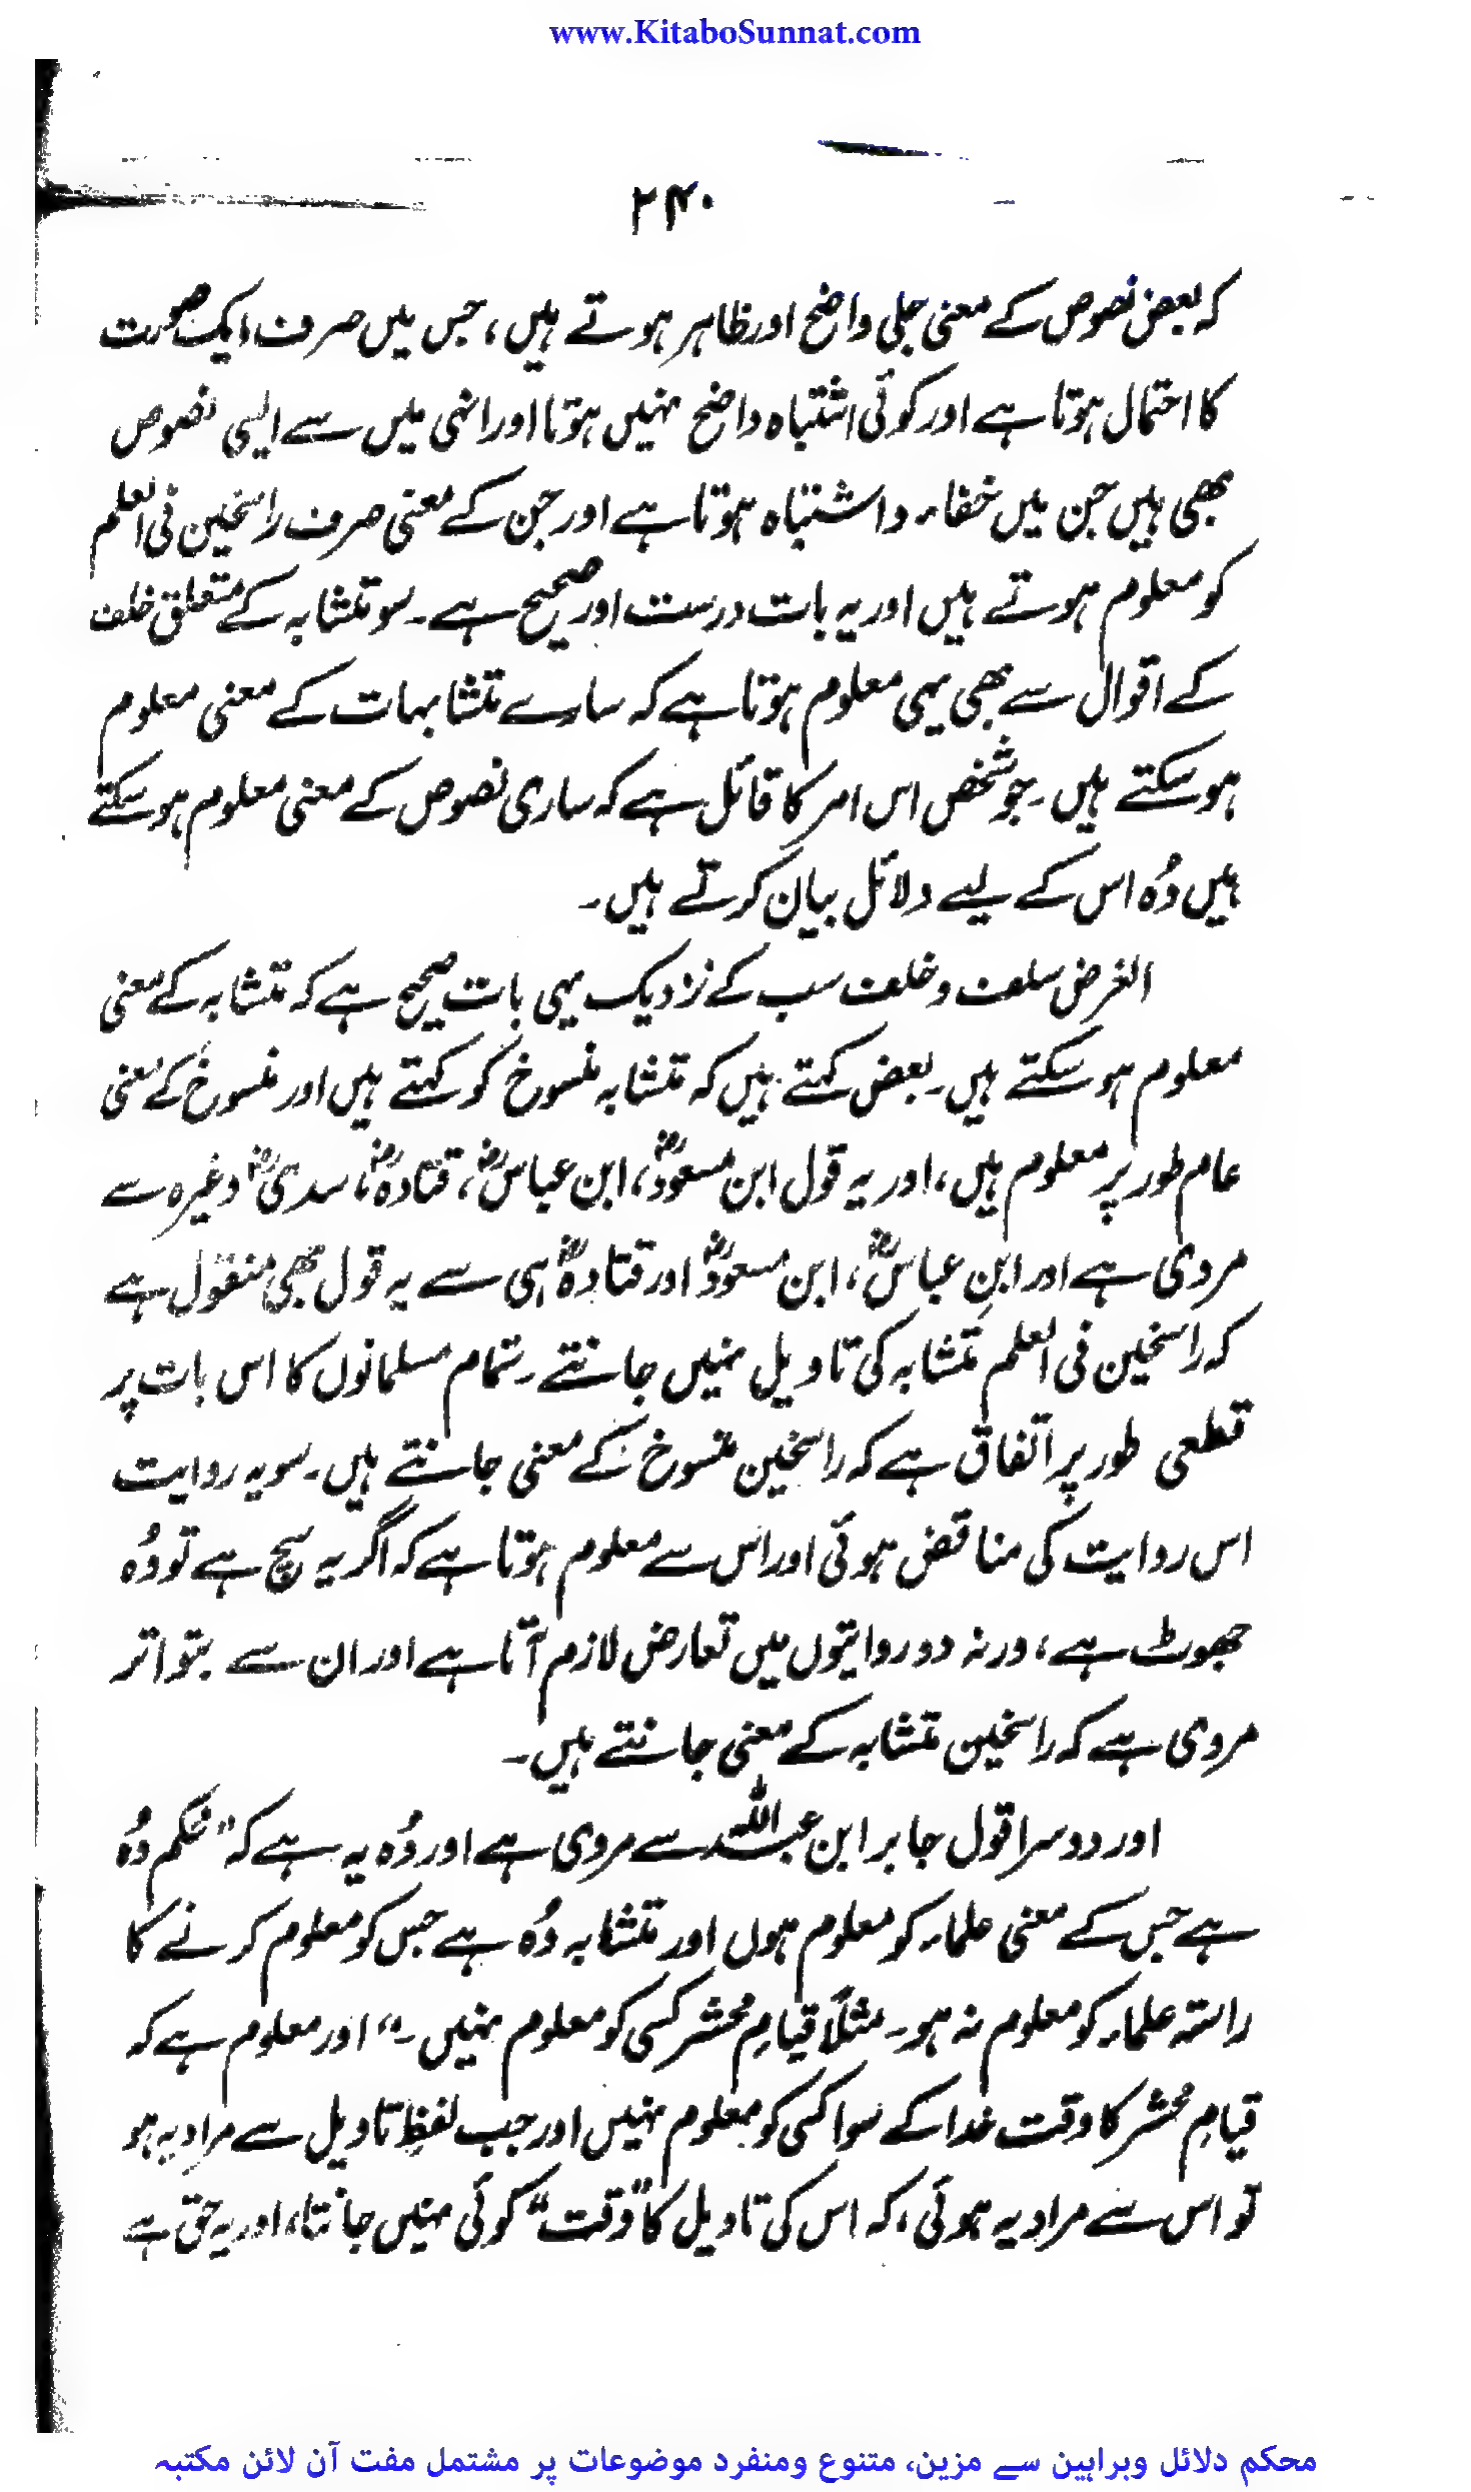 www.KitaboSunnat.com
۲۴۰
کہ بعض نصوص کے معنی جلی واضح اور ظاہر ہوتے ہیں، جس میں صرف ایک صورت
کا احتمال ہوتا ہے اور کوئی اشتباہ واضح نہیں ہوتا اور انہی میں سے ایسی نصوص
بھی ہیں جن میں خفاء و اشتباہ ہوتا ہے اور جن کے معنی صرف راسخین فی العلم
کو معلوم ہوتے ہیں اور یہ بات درست اور صحیح ہے۔ سو متشابہ کے متعلق خلف
کے اقوال سے بھی یہی معلوم ہوتا ہے کہ سارے متشابہات کے معنی معلوم
ہو سکتے ہیں۔ جو شخص اس امر کا قائل ہے کہ ساری نصوص کے معنی معلوم ہو سکتے
ہیں وُہ اس کے لیے دلائل بیان کرتے ہیں۔
الغرض سلف و خلف سب کے نزدیک یہی بات صحیح ہے کہ متشابہ کے معنی
معلوم ہو سکتے ہیں۔ بعض کہتے ہیں کہ متشابہ منسوخ کو کہتے ہیں اور منسوخ کے معنی
عام طور پر معلوم ہیں، اور یہ قول ابن مسعودؓ، ابن عباسؓ، قتادہؓ، سدیؓ وغیرہ سے
مروی ہے اور ابنِ عباسؓ، ابن مسعودؓ اور قتادہؓ ہی سے یہ قول بھی منقول ہے
کہ راسخین فی العلم متشابہ کی تاویل نہیں جانتے۔ تمام مسلمانوں کا اس بات پر
قطعی طور پر اتفاق ہے کہ راسخین منسوخ کے معنی جانتے ہیں۔ سو یہ روایت
اس روایت کی مناقض ہوئی اور اس سے معلوم ہوتا ہے کہ اگر یہ سچ ہے تو وُہ
جھوٹ ہے، ورنہ دو روایتوں میں تعارض لازم آتا ہے اور ان سے بتواتر
مروی ہے کہ راسخین متشابہ کے معنی جانتے ہیں۔
اور دوسرا قول جابر ابن عبداللہ سے مروی ہے اور وُہ یہ ہے کہ "محکم وُہ
ہے جس کے معنی علماء کو معلوم ہوں اور متشابہ وُہ ہے جس کو معلوم کرنے کا
راستہ علماء کو معلوم نہ ہو۔ مثلاً قیامِ محشر کسی کو معلوم نہیں۔" اور معلوم ہے کہ
قیامِ محشر کا وقت خدا کے سوا کسی کو معلوم نہیں اور جب لفظِ تاویل سے مراد یہ ہو
تو اس سے مراد یہ ہوئی، کہ اس کی تاویل کا "وقت" کوئی نہیں جانتا، اور یہ حق ہے
محکم دلائل وبراہین سے مزین، متنوع ومنفرد موضوعات پر مشتمل مفت آن لائن مکتبہ